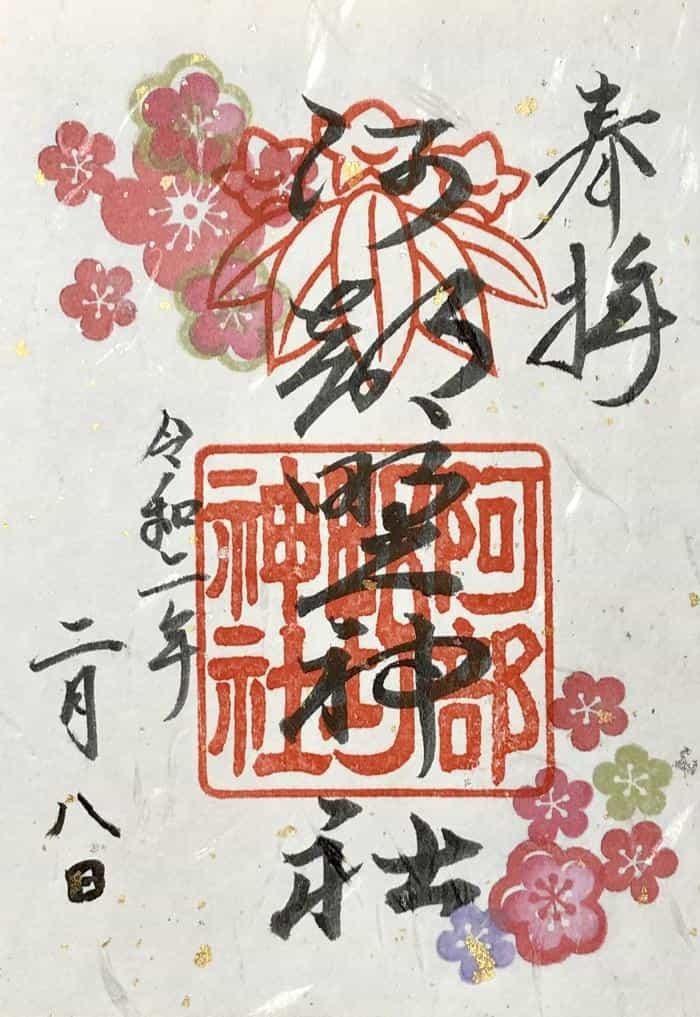 奉拝
阿部野神社
令和二年
二月八日
阿部
野
神社